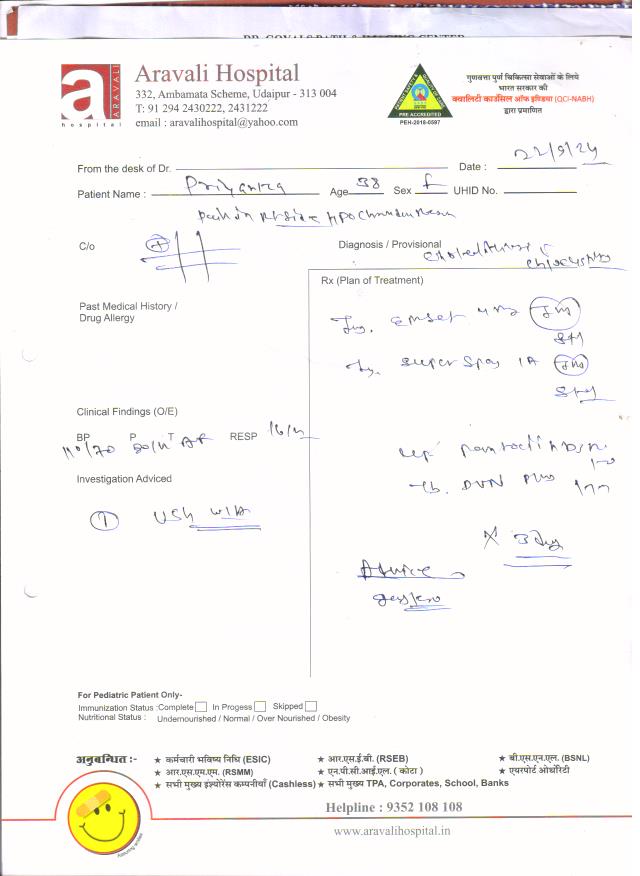 ARAVALI
hospital
Aravali Hospital
332, Ambamata Scheme, Udaipur - 313 004
T: 91 294 2430222, 2431222
email : aravalihospital@yahoo.com
PRE ACCREDITED
PEH-2018-0597
गुणवत्ता पूर्ण चिकित्सा सेवाओं के लिये
भारत सरकार की
क्वालिटी काउंसिल ऑफ इण्डिया (QCI-NABH)
द्वारा प्रमाणित
From the desk of Dr. Date : 22/9/24
Patient Name : Priyanka Age 38 Sex f UHID No.
Pain in Rt side
C/o
Diagnosis / Provisional
Rx (Plan of Treatment)
Past Medical History /
Drug Allergy
Inj. Emset 4mg IM
Inj. Superspas 1A IM
Clinical Findings (O/E)
BP P T RESP 16/m
110/70 80/m AF
Investigation Adviced
1 USG W/A
Tb. DVN Plus
x 3 day
Advice
For Pediatric Patient Only-
Immunization Status :Complete In Progess Skipped
Nutritional Status : Undernourished / Normal / Over Nourished / Obesity
अनुबन्धित :- ★ कर्मचारी भविष्य निधि (ESIC) ★ आर.एस.ई.बी. (RSEB) ★ बी.एस.एन.एल. (BSNL)
★ आर.एस.एम.एम. (RSMM) ★ एन.पी.सी.आई.एल. ( कोटा ) ★ एयरपोर्ट ऑथोरिटी
★ सभी मुख्य इंश्योरेंस कम्पनीयाँ (Cashless) ★ सभी मुख्य TPA, Corporates, School, Banks
Helpline : 9352 108 108
www.aravalihospital.in